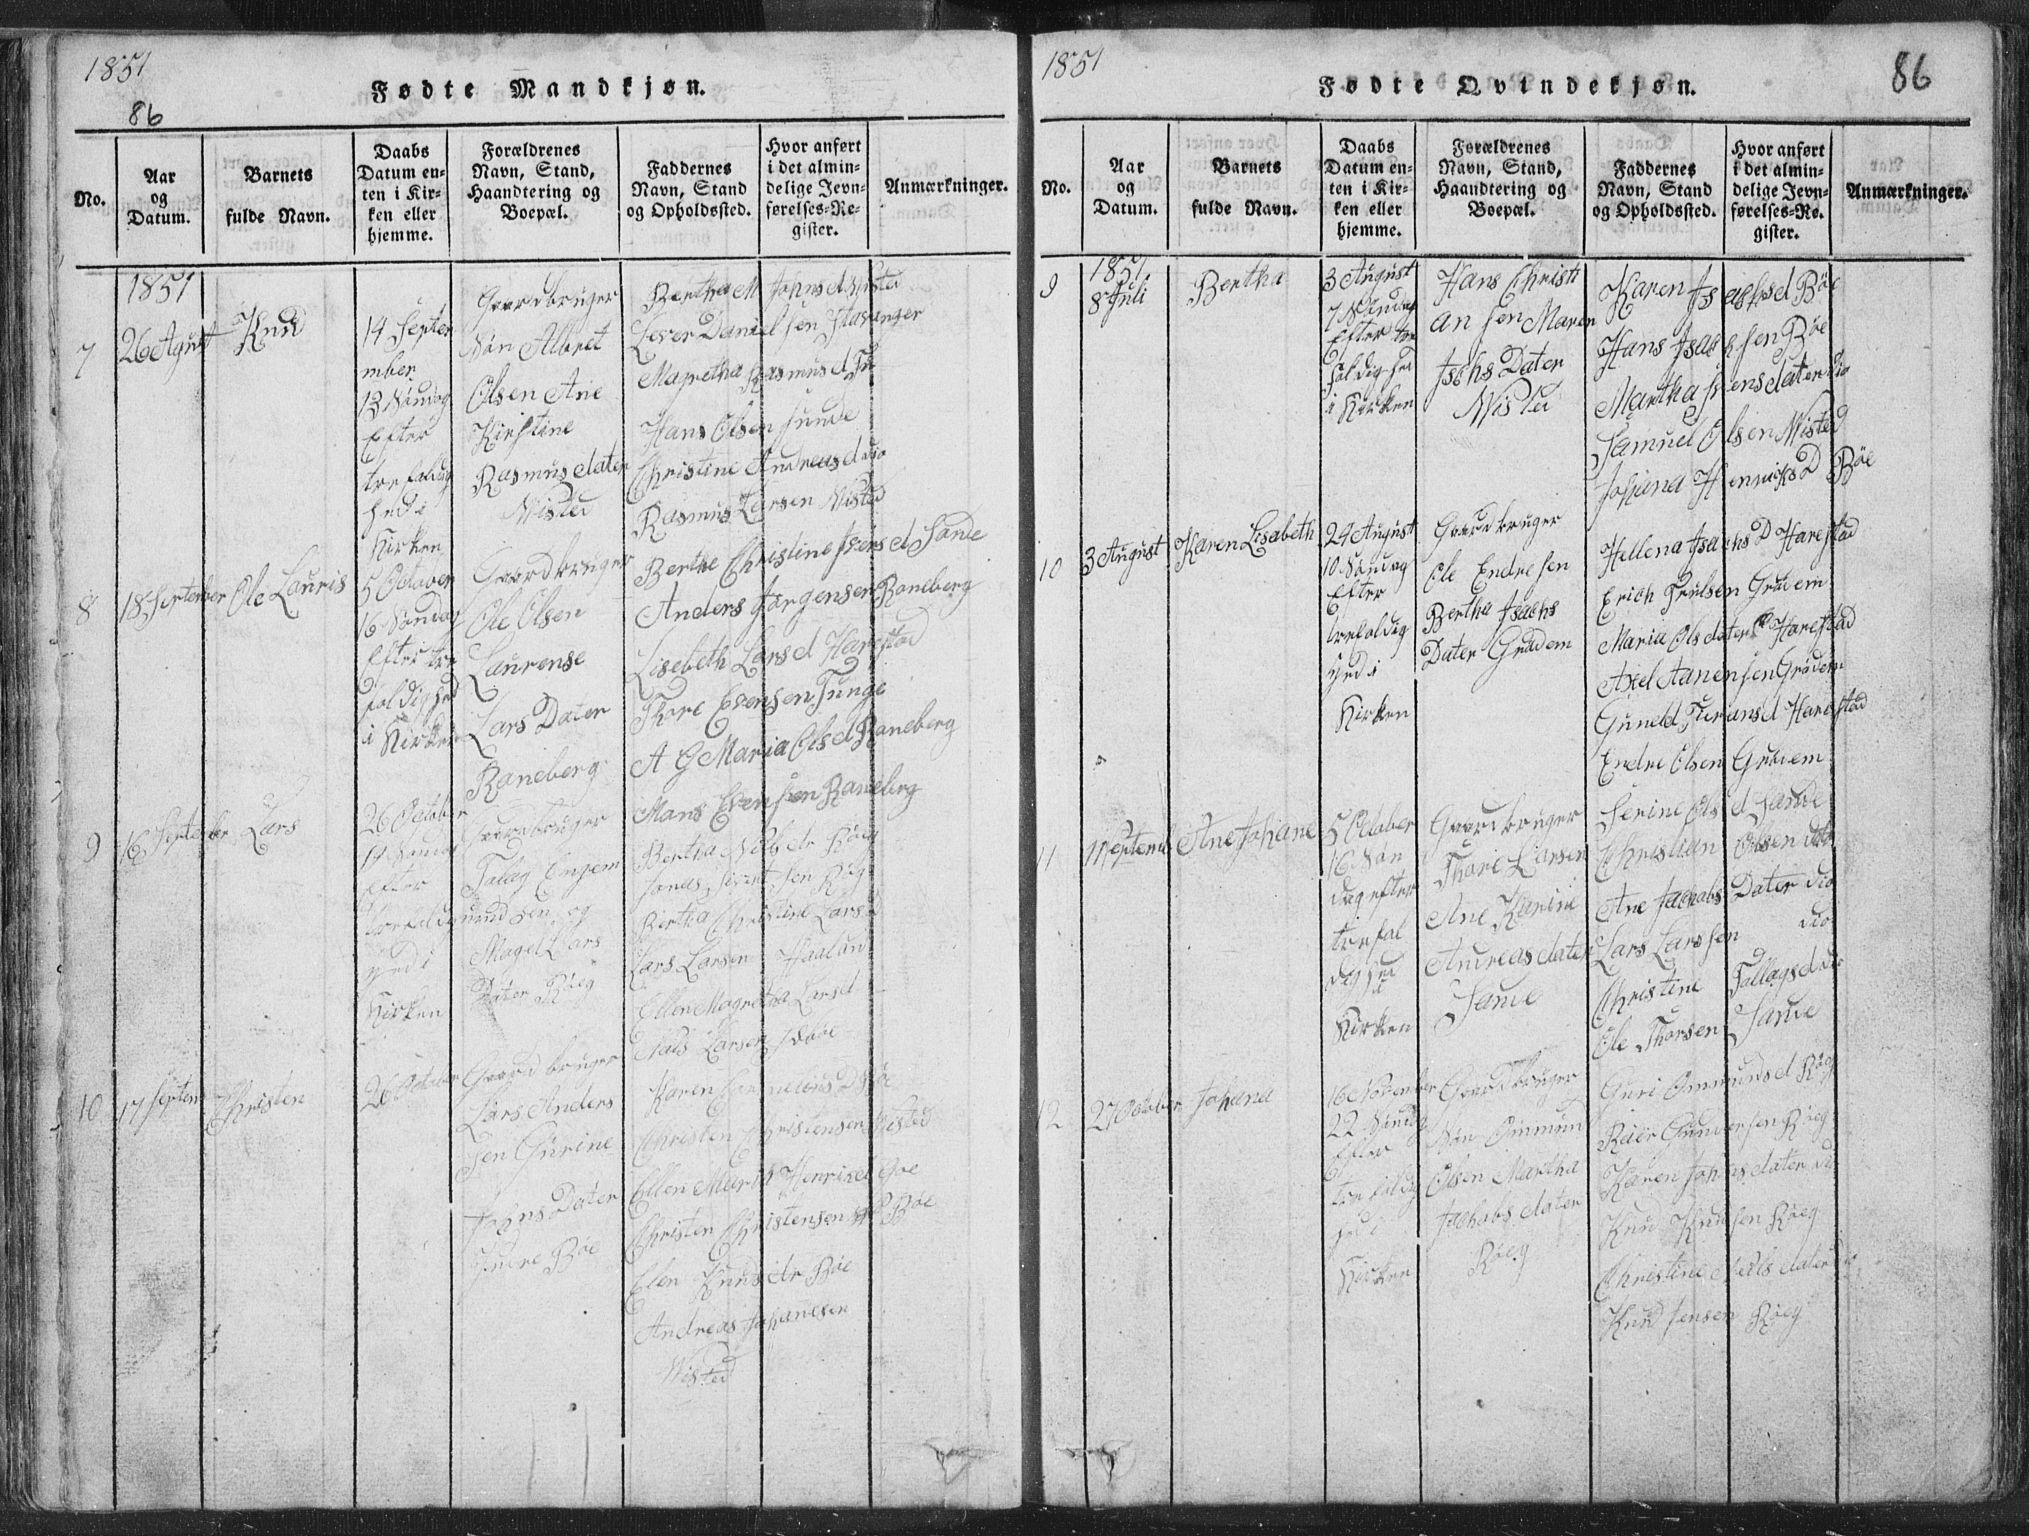 1851
86
Fødte Mandkjøn.
No.
Aar
og
Datum.
Barnets
fulde Navn.
Daabs
Datum en-
ten i Kir-
ken eller
hjemme.
Forældrenes
Navn, Stand,
Haandtering og
Boepæl.
Faddernes
Navn, Stand
og Opholdssted.
Hvor anført
i det almin-
delige Jevn-
førelses-Re-
gister.
Anmærkninger.
1851
7
26 Agust
Knud
14 Septer
mber
13 Søndag
Efter
trefoldig
hed i
Kirken
Gaardbruger
Søn Albret
Olsen Ane
Kirstine
Rasmusdater
Wisted
Bertha M Johnsd Wisted
Sever Danielsen Stavanger
Magretha Rasmusd
Hans Olsen Sunde
Christine Andreasd dio
Rasmus Larsen Wisted
8
18 September
Ole Lauris
5 October
16 Søndag
Efter tre
foldighed
i Kirken
Gaardbruger
Ole Olsen
Laurense
Lars Dater
Raneberg
Berthe Christine Iversd Sande
Anders Jørgensen Raneberg
Lisebeth Larsd Harestad
Thore Evensen Tunge
A G Maria Olsd Raneberg
Mans Evensen Raneberg
9
16 September
Lars
26 October
19 Søndag
Efter
trefoldig
hed i
Kirken
Gaardbruger
Talag
og
Magel Lars
Dater Røeg
Bertha Nilsdr Røeg
Jonas Sivertsen Røg
Bertha Christine Larsd
Lars Larsen Haaland
Ellen Magretha Larsd
Nils Larsen
10
17 Septem
Christen
26 October
Gaardbruger
Lars Anders
sen Gurine
Johns Dater
Indre Bøe
Karen Corneliusd Bøe
Christen Christensen Wisted
Ellen Maria Henriksd Goe
Christen Christensen Bøe
Elen Knudsdr Bøe
Andreas Johanesen
Wisted
1851
86
Fødte Qvindekjøn.
No.
Aar
og
Datum.
Barnets
fulde Navn.
Daabs
Datum en-
ten i Kir-
ken eller
hjemme.
Forældrenes
Navn, Stand,
Haandtering og
Boepæl.
Faddernes
Navn, Stand
og Opholdssted.
Hvor anført
i det almin-
delige Jevn-
førelses-Re-
gister.
Anmærkninger.
1851
9
8 Juli
Bertha
3 August
7 Søndag
Efter tre
foldighed
i Kirken
Hans Christi
ansen Maren
Isachs Dater
Wisted
Karen Isachsd Bøe
Hans Isachsen Bøe
Martha Svensdater dio
Samuel Olsen Wisted
Johana Henriks D Bøe
10
3 August
Karen Lisabeth
24 August
10 Søndag
Efter
trefoldig
hed i
Kirken
Gaardbruger
Ole Endresen
Bertha Isachs
Dater Grødem
Hellena Isachs D Harestad
Erich Trulsen Grødem
Maria Olsdater Harestad
Axel Aanensen Grødem
Guneld Harestad
Endre Olsen Grødem
11
11 Septemb
Ane Johane
5 October
16 Søn
dag efter
trefol
dighed
i
Kirken
Gaardbruger
Thore Larsen
Ane Karine
Andreasdater
Sande
Serine Olsd Sande
Christian Olsen dito
Ane Jachobs Dater dio
Lars Larssen dio
Christine Tallagsd dio
Ole Thorsen Sande
12
27 October
Johana
16 November
22 Søndg
Efter
trefoldig
hed i
Kirken
Gaardbruger
Søn Ommun
Olsen Martha
Jachobs dater
Røeg
Guri Ommunds d Røeg
Reier Gundersen Røeg
Karen Johnsdater dio
Knud Knudsen Røeg
Christine Nilsdater dio
Knud Jensen Røeg